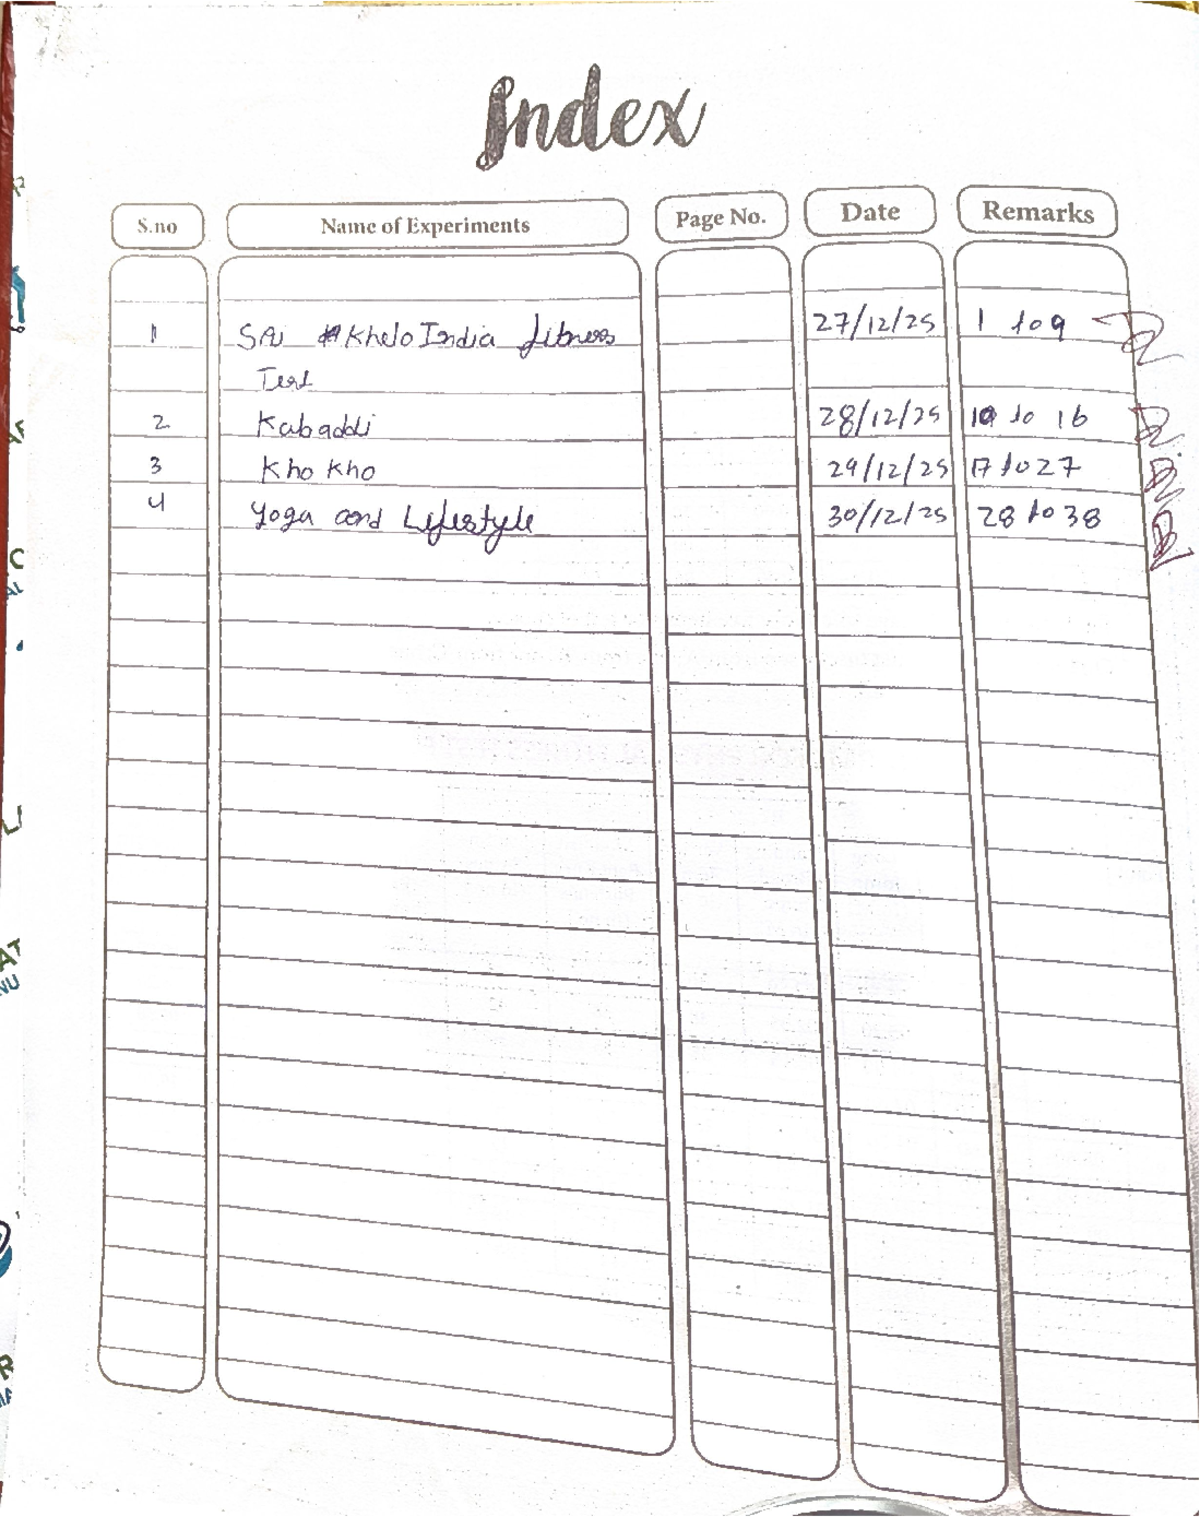 Index
S.no Name of Experiments Page No. Date Remarks
1 SAI Khelo India fitness 27/12/25 1 to 9
Test
2 Kabaddi 28/12/25 10 to 16
3 Kho Kho 29/12/25 17 to 27
4 Yoga and Lifestyle 30/12/25 28 to 38